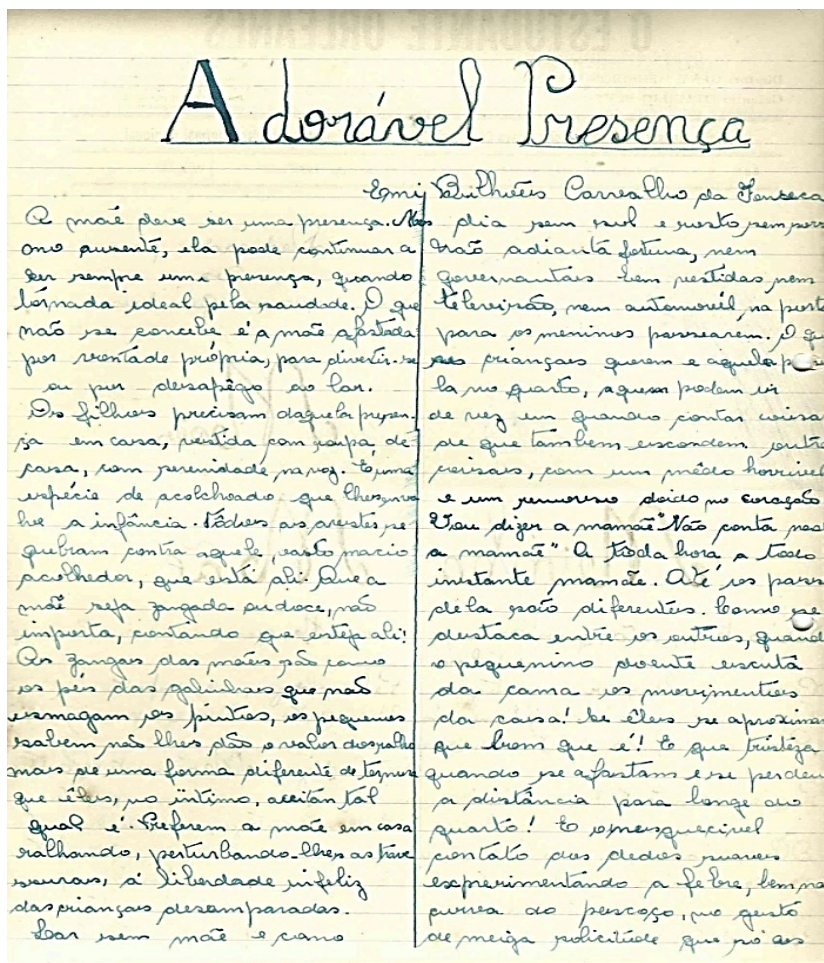 Adorável Presença
Emi Bulhões Carvalho da Fonseca
A mãe deve ser uma presença. Mes
mo ausente, ela pode continuar a
ser sempre uma presença, quando
tornada ideal pela saudade. O que
não se concebe é a mãe afastada
por vontade própria, para divertir-se
ou por desapêgo ao lar.
Os filhos precisam daquela presen-
ça em casa, vestida com roupa de
casa, com serenidade na voz. É uma
espécie de acolchoado que lhes envol
he a infância. Tôdas as arestas se
quebram contra aquele vasto macio
acolhedor, que está ali. Que a
mãe seja zangada ou doce, não
importa, contando que esteja ali!
As zangas das mães são como
os pés das galinhas que não
esmagam os pintos, os pequenos
sabem não lhes dão o valor de ralho
mais de uma forma diferente de ternura
que êles, no íntimo, aceitan tal
qual é. Preferem a mãe em casa
ralhando, perturbando-lhes as trave
ssuras, à liberdade infeliz
das crianças desamparadas.
Lar sem mãe e como
dia sem sol e rosto sem
Não adianta fortuna, nem
governantas bem vestidas, nem
televisão, nem automovel, na port
para os meninos passearem. O qu
as crianças querem e aquela
la no quarto, a quem podem ir
de vez em quando contar coisa
de que tambem escondem outr
coisas, com um mêdo horrivel
e um remorso doido no coração
Vou dizer a mamãe" Não conta
a mamãe" A toda hora, a todo
instante mamãe. Até os pass
dela são diferentes. Como se
destaca entre os outros, quand
o pequenino doente escuta
da cama os movimentos
da casa! Se êles se aproximam
que bom que é! E que tristeza
quando se afastam e se perdem
a distância para longe do
quarto! E o inesquecivel
contato dos dedos suaves
experimentando a febre, bem na
curva do pescoço, no gesto
de meiga solicitude que só as